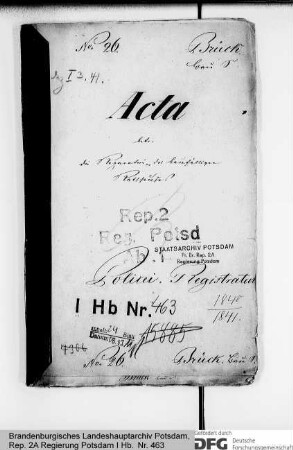 No 26.
Brück
Bau S
I 3. 41.
Acta
betr.
die Reparatur des baufälligen
Rep. 2
Reg. Potsd
STAATSARCHIV POTSDAM
Pr. Br. Rep. 2A
Regierung Potsdam
Abt. I
Polizei-Registratur
I Hb Nr. 463
1840
1841.
No 26.
Brück. Bau S.
Brandenburgisches Landeshauptarchiv Potsdam,
Rep. 2A Regierung Potsdam I Hb. Nr. 463
Gefördert durch
DFG Deutsche
Forschungsgemeinschaft